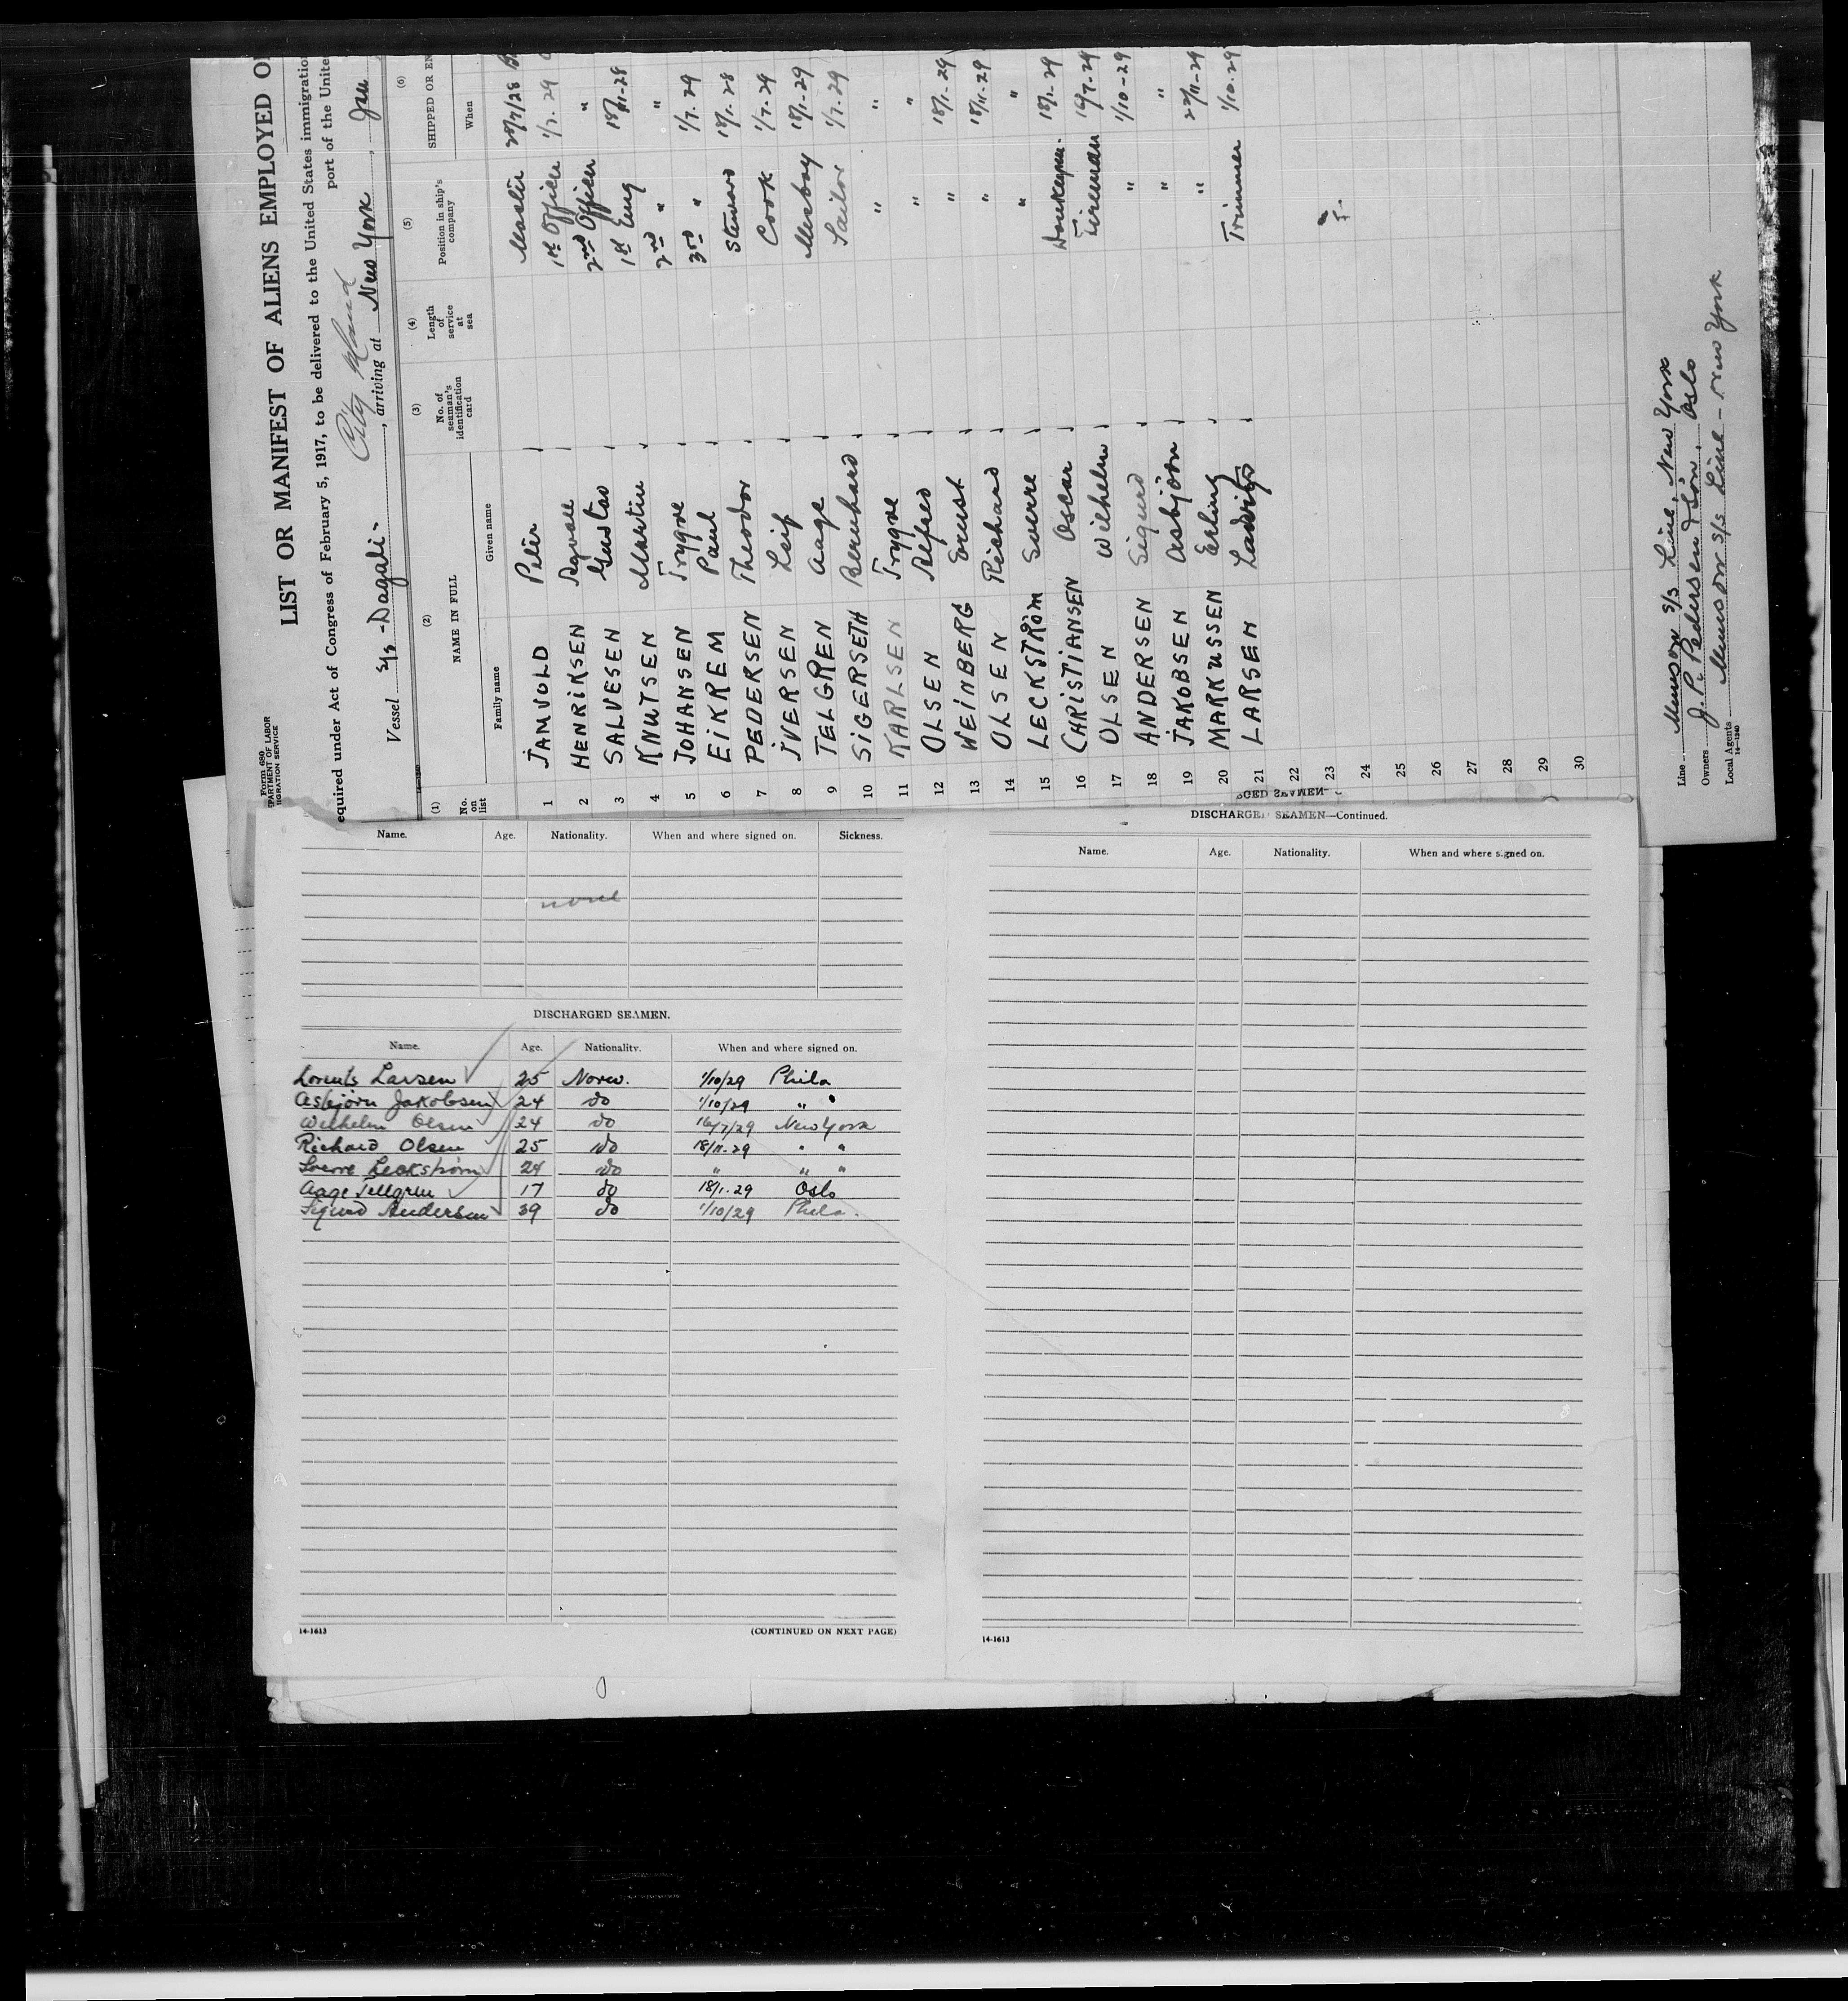 Form 680
DEPARTMENT OF LABOR
IGRATION SERVICE
LIST OR MANIFEST OF ALIENS EMPLOYED O
equired under Act of Congress of February 5, 1917, to be delivered to the United States immigration
port of the Unite
City Island
Vessel S/S - Dagali - , arriving at New York ,
(1) (2) (3) (4) (5) (6)
No. on list NAME IN FULL No. of seaman's identification card Length of service at sea Position in ship's company SHIPPED OR EN
Family name Given name When
1 JAMVOLD Peter Master 28/7/28
2 HENRIKSEN 1st Officer 1/7.29
3 SALVESEN Gustav 2nd Officer "
4 KNUTSEN Martin 1st Eng 18/11-28
5 JOHANSEN Trygve 2nd " "
6 EIKREM Paul 3rd " 1/7.29
7 PEDERSEN Theodor Steward 18/1.28
8 IVERSEN Leif Cook 1/7.29
9 TELGREN Aage Messboy 18/1-29
10 SIGERSETH Bernhard Sailor 1/7.29
11 KARLSEN Trygve " "
12 OLSEN Alfred " "
13 WEINBERG Ernst " 18/1-29
14 OLSEN Richard " 18/11-29
15 LECKSTRÖM Sverre " "
16 CHRISTIANSEN Oscar Donkeyman. 18/1.29
17 OLSEN Wilhelm Fireman 16/7-29
18 ANDERSEN Sigurd " 1/10-29
19 JAKOBSEN Asbjörn " "
20 MARKUSSEN Erling " 22/11-29
21 LARSEN Trimmer 1/10.29
22
23
24
25
26
27
28
29
30
Line Munson S/S Line, New York
Owners J. P. Pedersen & Sön, Oslo
Local Agents Munson S/S Line - New York
14-1240
Name. Age. Nationality. When and where signed on. Sickness.
none
DISCHARGED SEAMEN.
Name. Age. Nationality. When and where signed on.
Lorents Larsen 25 Norw. 1/10/29 Phila
Asbjörn Jakobsen 24 do 1/10/29 " "
Wilhelm Olsen 24 do 16/7/29 New York
Richard Olsen 25 do 18/11.29 " "
Sverre Leckström 24 do " " "
Aage Tellgren 17 do 18/1.29 Oslo
Sigurd Andersen 39 do 1/10/29 Phila.
14-1613 (CONTINUED ON NEXT PAGE)
DISCHARGED SEAMEN—Continued.
Name. Age. Nationality. When and where signed on.
14-1613